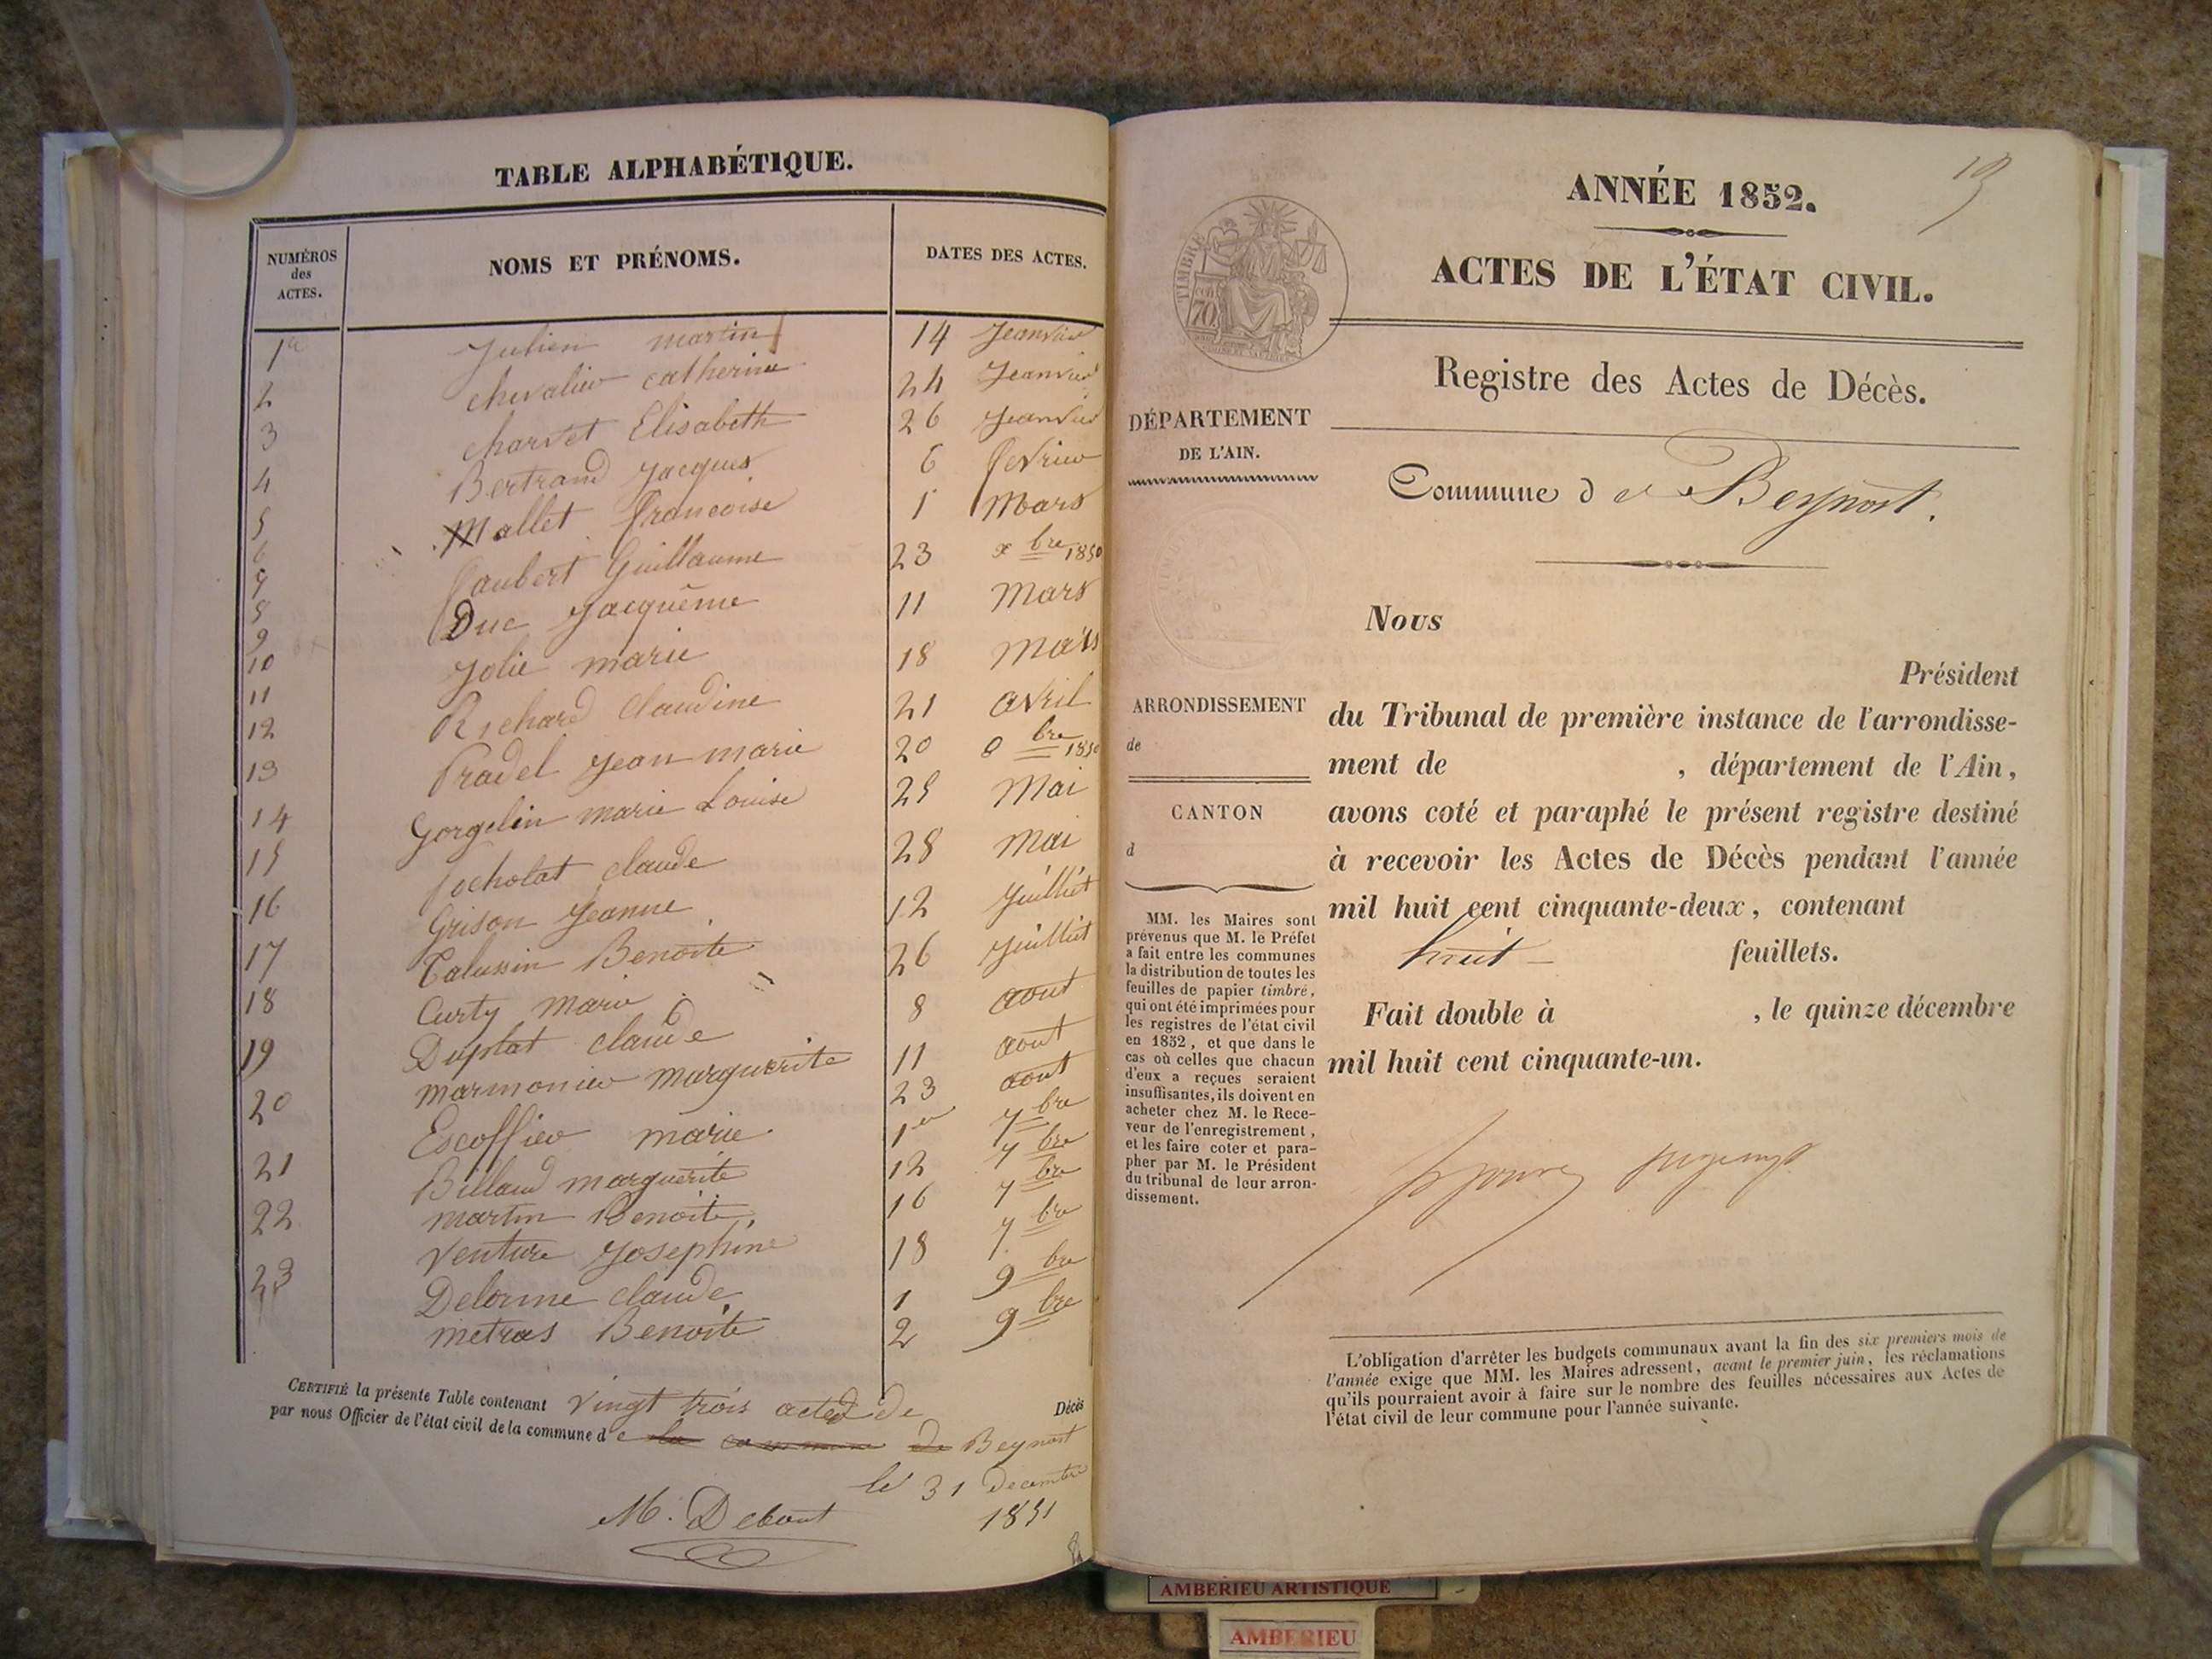 TABLE ALPHABÉTIQUE.
NUMÉROS des ACTES.
NOMS ET PRÉNOMS.
DATES DES ACTES.
1er Julien martin 14 Jeanvier
2 chevalier catherine 24 Jeanvier
3 charvet Elisabeth 26 Jeanvier
4 Bertrand Jacques 6 fevrier
5 Mallet francoise 1 Mars
6 Jaubert Guillaume 23 xbre 1850
7 Duc Jacquême 11 Mars
8 Jolie marie 18 Mars
9 Richard Claudine 21 avril
10 Pradel Jean marie 20 8bre 1850
11 Gorgelin marie Louise 25 Mai
12 claude 28 Mai
13 Grison Jeanne 12 Juilliet
14 Talussin Benoite 26 Juilliet
15 Curty Marie 8 aout
16 Duplat claude 11 aout
17 marmonier marguerite 23 aout
18 Escoffier marie 1er 7bre
19 Billand marguerite 12 7bre
20 martin Benoite 16 7bre
21 venture Josephine 18 7bre
22 Delorme claude 1 9bre
23 metras Benoite 2 9bre
CERTIFIÉ la présente Table contenant vingt trois acted de Décès
par nous Officier de l'état civil de la commune de la commune de Beynost
le 31 Decembre
1851
M. Debout
19
ANNÉE 1852.
ACTES DE L'ÉTAT CIVIL.
TIMBRE
70
Registre des Actes de Décès.
DÉPARTEMENT
DE L'AIN.
Commune de Beynost.
ARRONDISSEMENT
de
CANTON
d
MM. les Maires sont
prévenus que M. le Préfet
a fait entre les communes
la distribution de toutes les
feuilles de papier timbré,
qui ont été imprimées pour
les registres de l'état civil
en 1852, et que dans le
cas où celles que chacun
d'eux a reçues seraient
insuffisantes, ils doivent en
acheter chez M. le Rece-
veur de l'enregistrement,
et les faire coter et para-
pher par M. le Président
du tribunal de leur arron-
dissement.
Nous
Président
du Tribunal de première instance de l'arrondisse-
ment de , département de l'Ain,
avons coté et paraphé le présent registre destiné
à recevoir les Actes de Décès pendant l'année
mil huit cent cinquante-deux, contenant
huit feuillets.
Fait double à , le quinze décembre
mil huit cent cinquante-un.
L'obligation d'arrêter les budgets communaux avant la fin des six premiers mois de
l'année exige que MM. les Maires adressent, avant le premier juin, les réclamations
qu'ils pourraient avoir à faire sur le nombre des feuilles nécessaires aux Actes de
l'état civil de leur commune pour l'année suivante.
AMBERIEU ARTISTIQUE
AMBERIEU